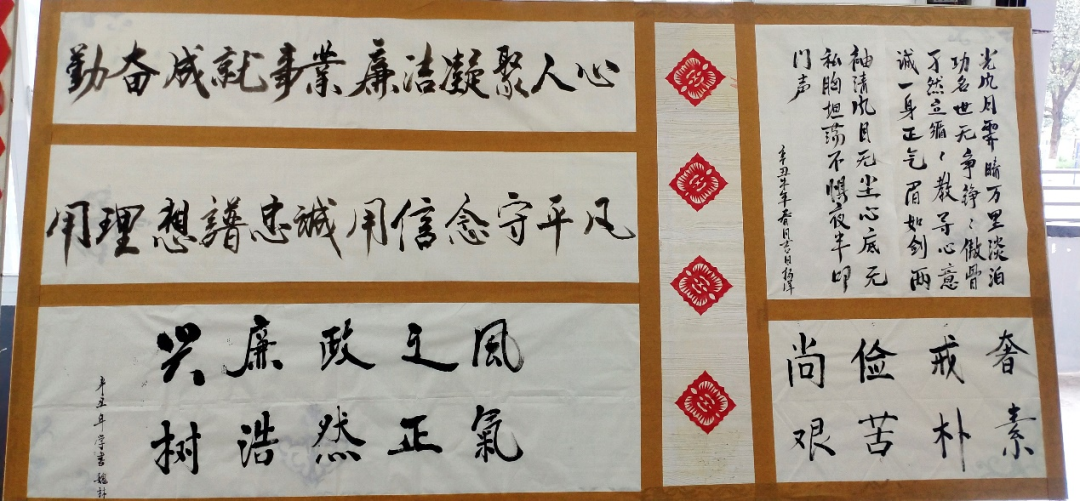 勤奋成就事業廉洁凝聚人心
用理想譜忠誠用信念守平凡
兴廉政之風
树浩然正氣
辛丑年学书
光风月霁晴万里淡泊
功名世无争铮々傲骨
孑然立循々教导心意
诚一身正气眉如剑两
袖清风目无尘心底无
私胸坦荡不惧夜半叩
门声
辛丑牛年春月吉日
尚俭戒奢
艰苦朴素